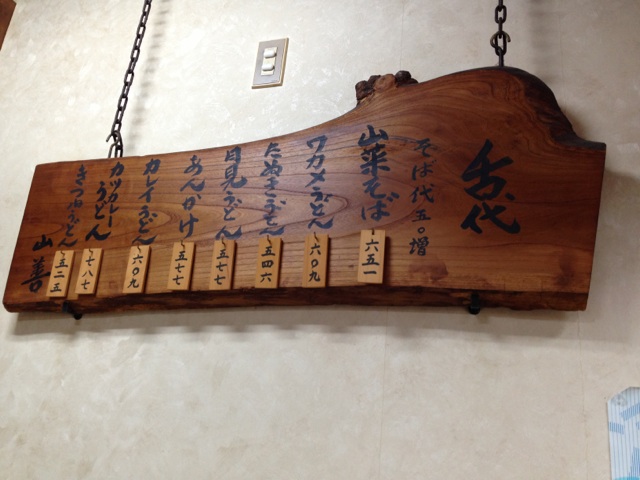 舌代
そば代五〇増
山菜そば
六五一
ワカメうどん
六〇九
たぬきうどん
五四六
月見うどん
五七七
あんかけ
五七七
カレイうどん
六〇九
カツカレーうどん
七八七
きつねうどん
五二五
山善